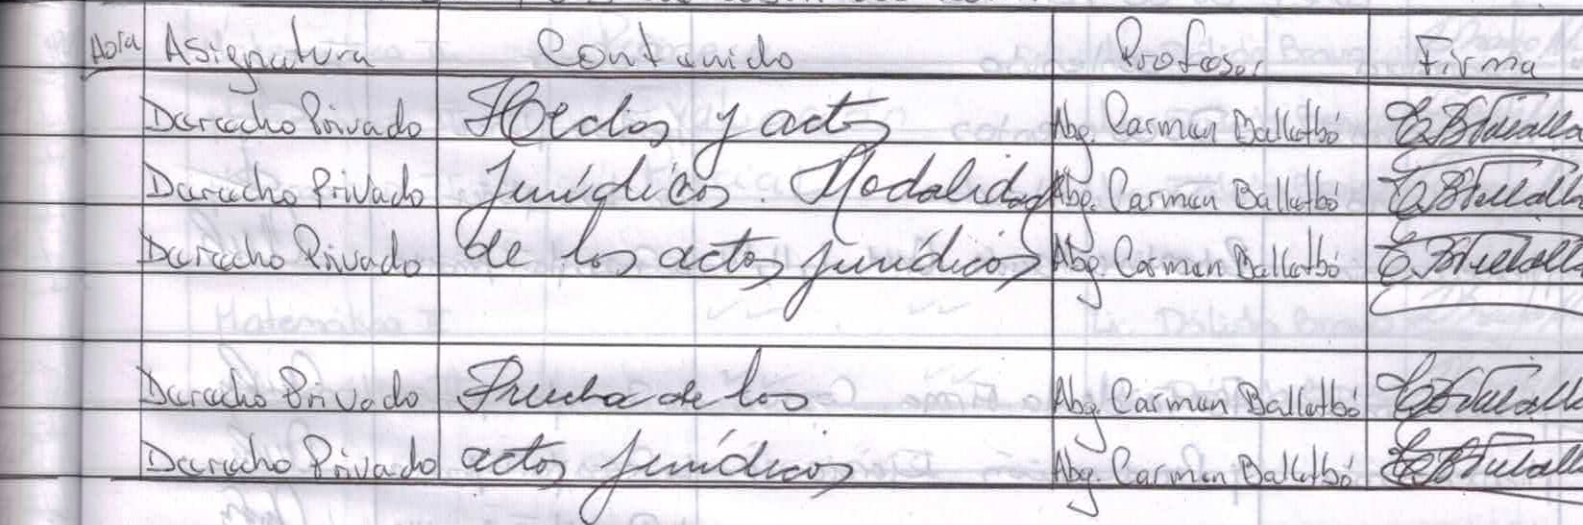 Hora Asignatura Contenido Profesor Firma
Derecho Privado Hechos y actos Abg. Carmen Ballatbó
Derecho Privado Jurídicos. Modalidad Abg. Carmen Ballatbó
Derecho Privado de los actos jurídicos Abg. Carmen Ballatbó
Derecho Privado Prueba de los Abg. Carmen Ballatbó
Derecho Privado actos jurídicos Abg. Carmen Ballatbó